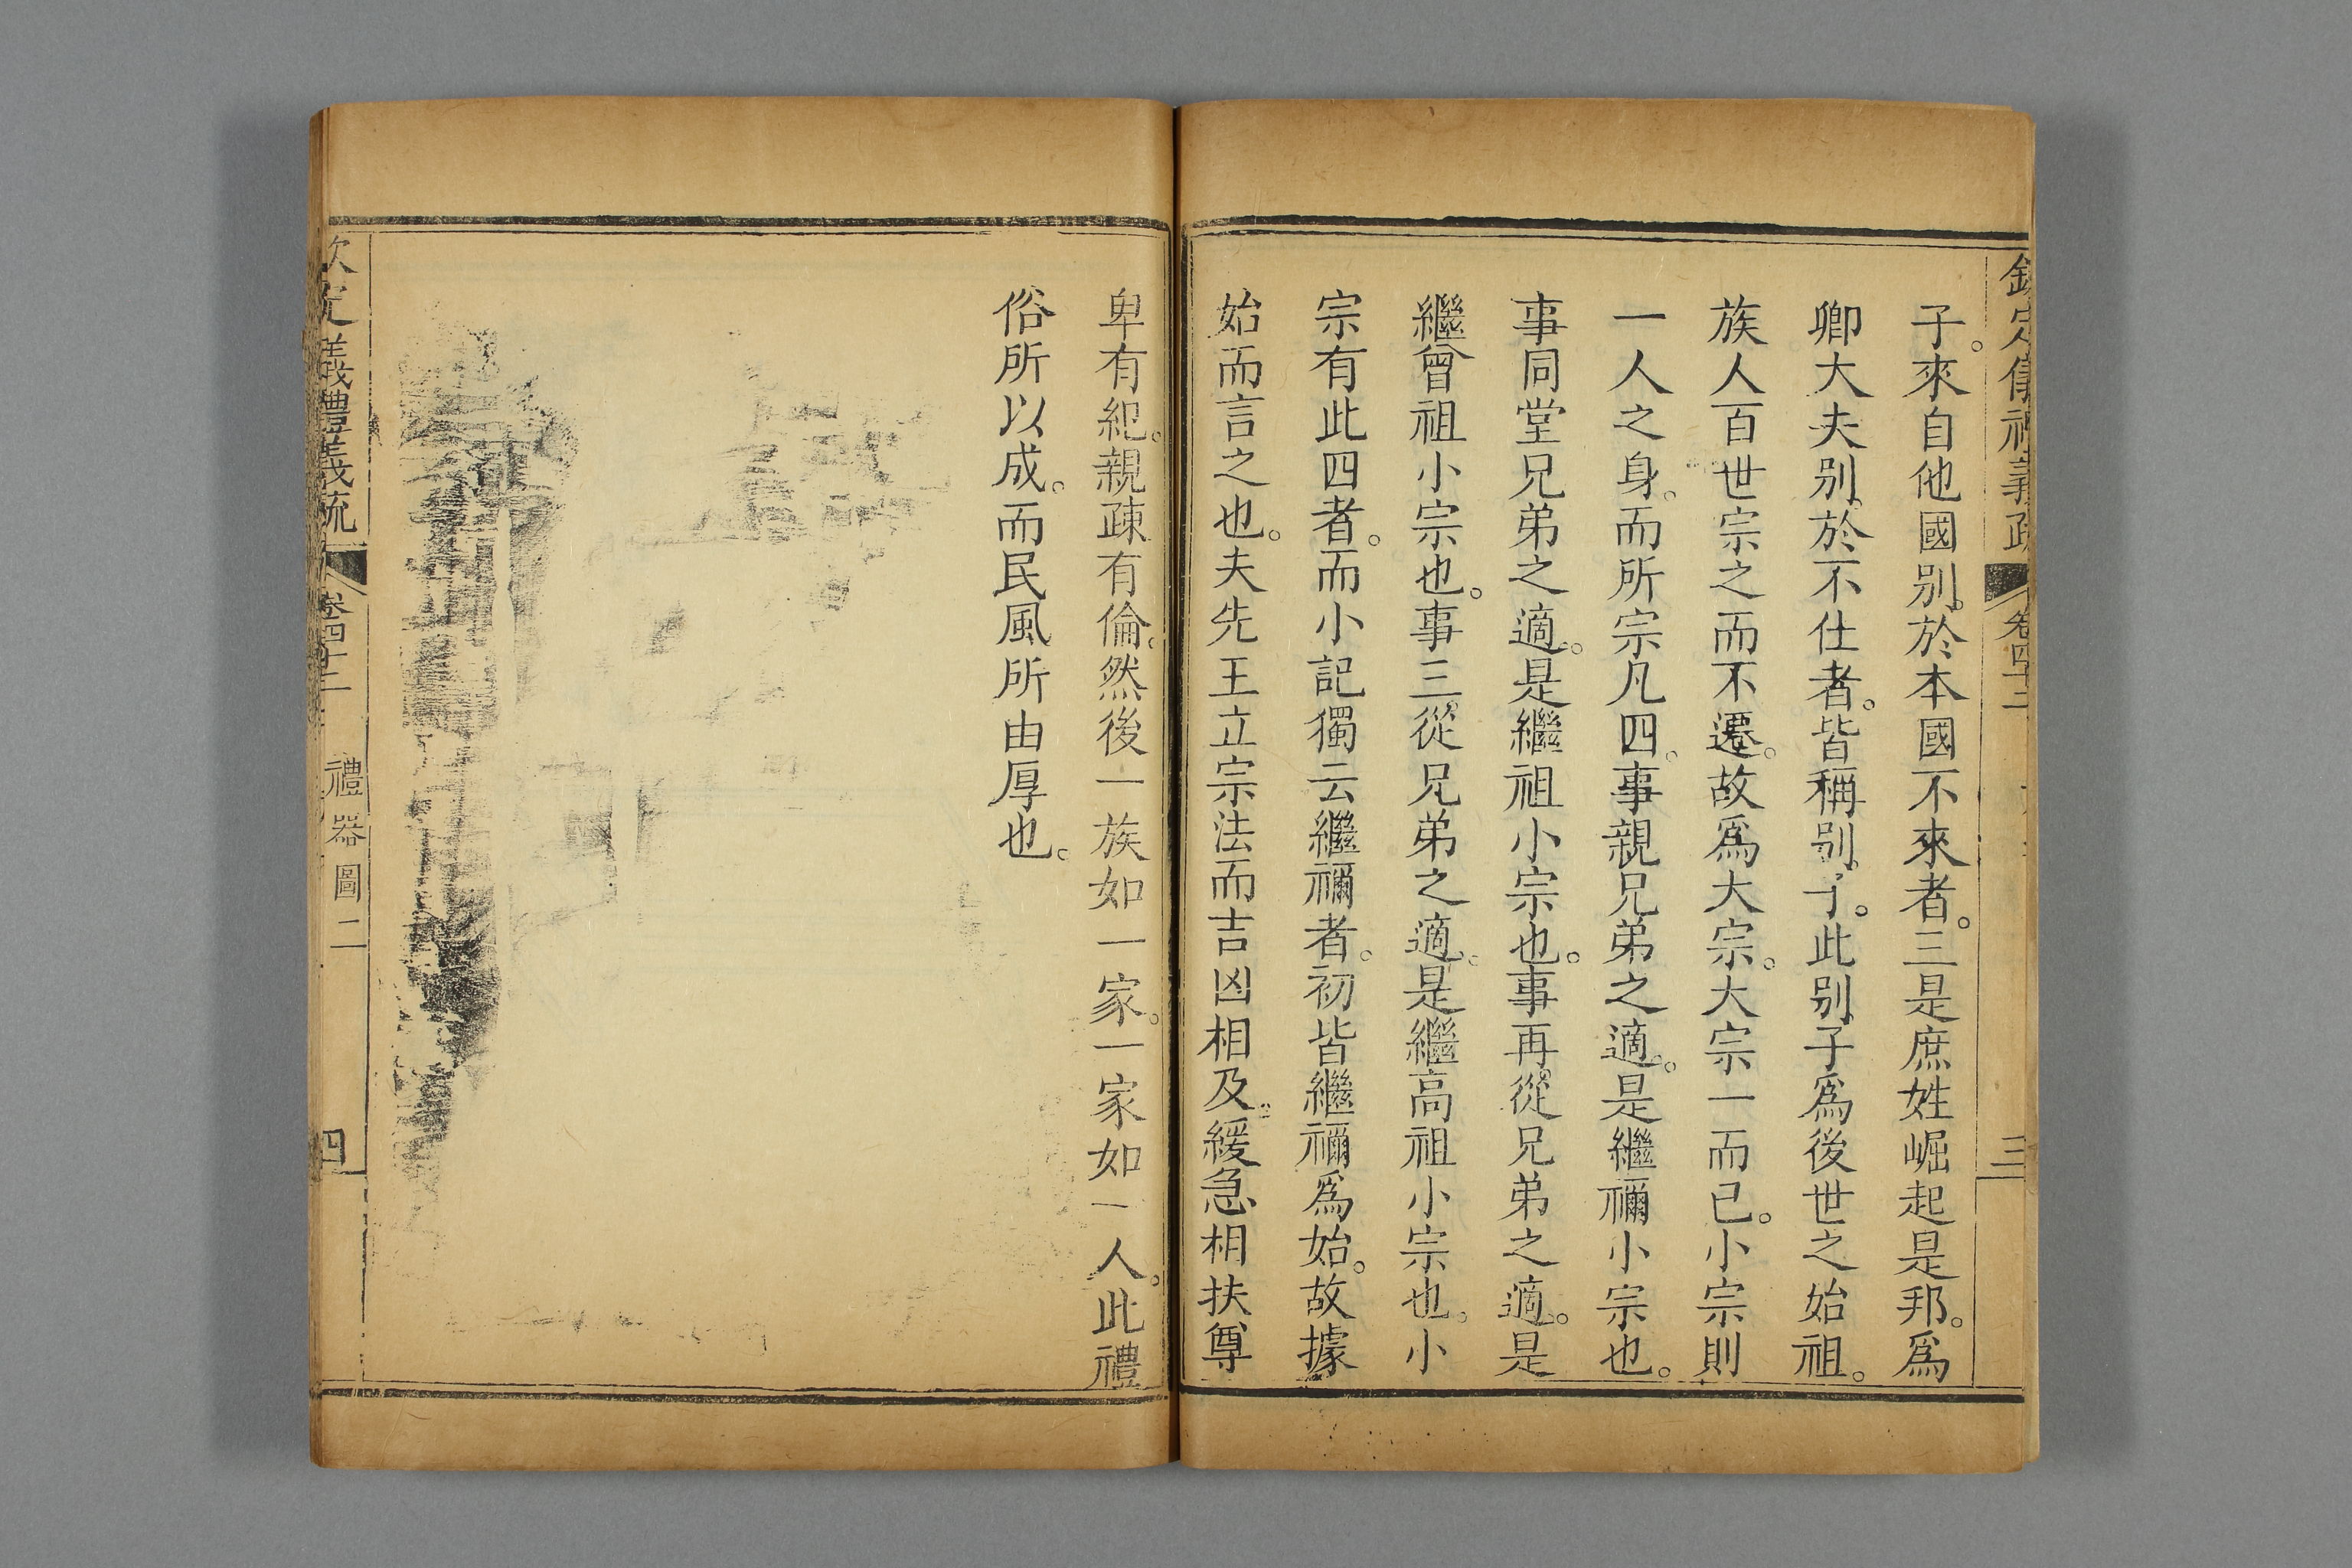 欽定儀禮義疏 卷四十二 三
子。來自他國别。於本國不來者。三是庶姓崛起是邦。爲
卿大夫别。於不仕者。皆稱别。子。此别子爲後世之始祖。
族人百世宗之而不遷。故爲大宗。大宗一而已。小宗則
一人之身。而所宗凡四。事親兄弟之適。是繼禰小宗也。
事同堂兄弟之適。是繼祖小宗也。事再從兄弟之適。是
繼曾祖小宗也。事三從兄弟之適。是繼高祖小宗也。小
宗有此四者。而小記獨云繼禰者。初皆繼禰爲始。故據
始而言之也。夫先王立宗法而吉凶相及。緩急相扶尊
卑有紀。親疎有倫。然後一族如一家。一家如一人。此禮
俗所以成。而民風所由厚也。
欽定義禮義疏 卷四十二 禮器圖二 四